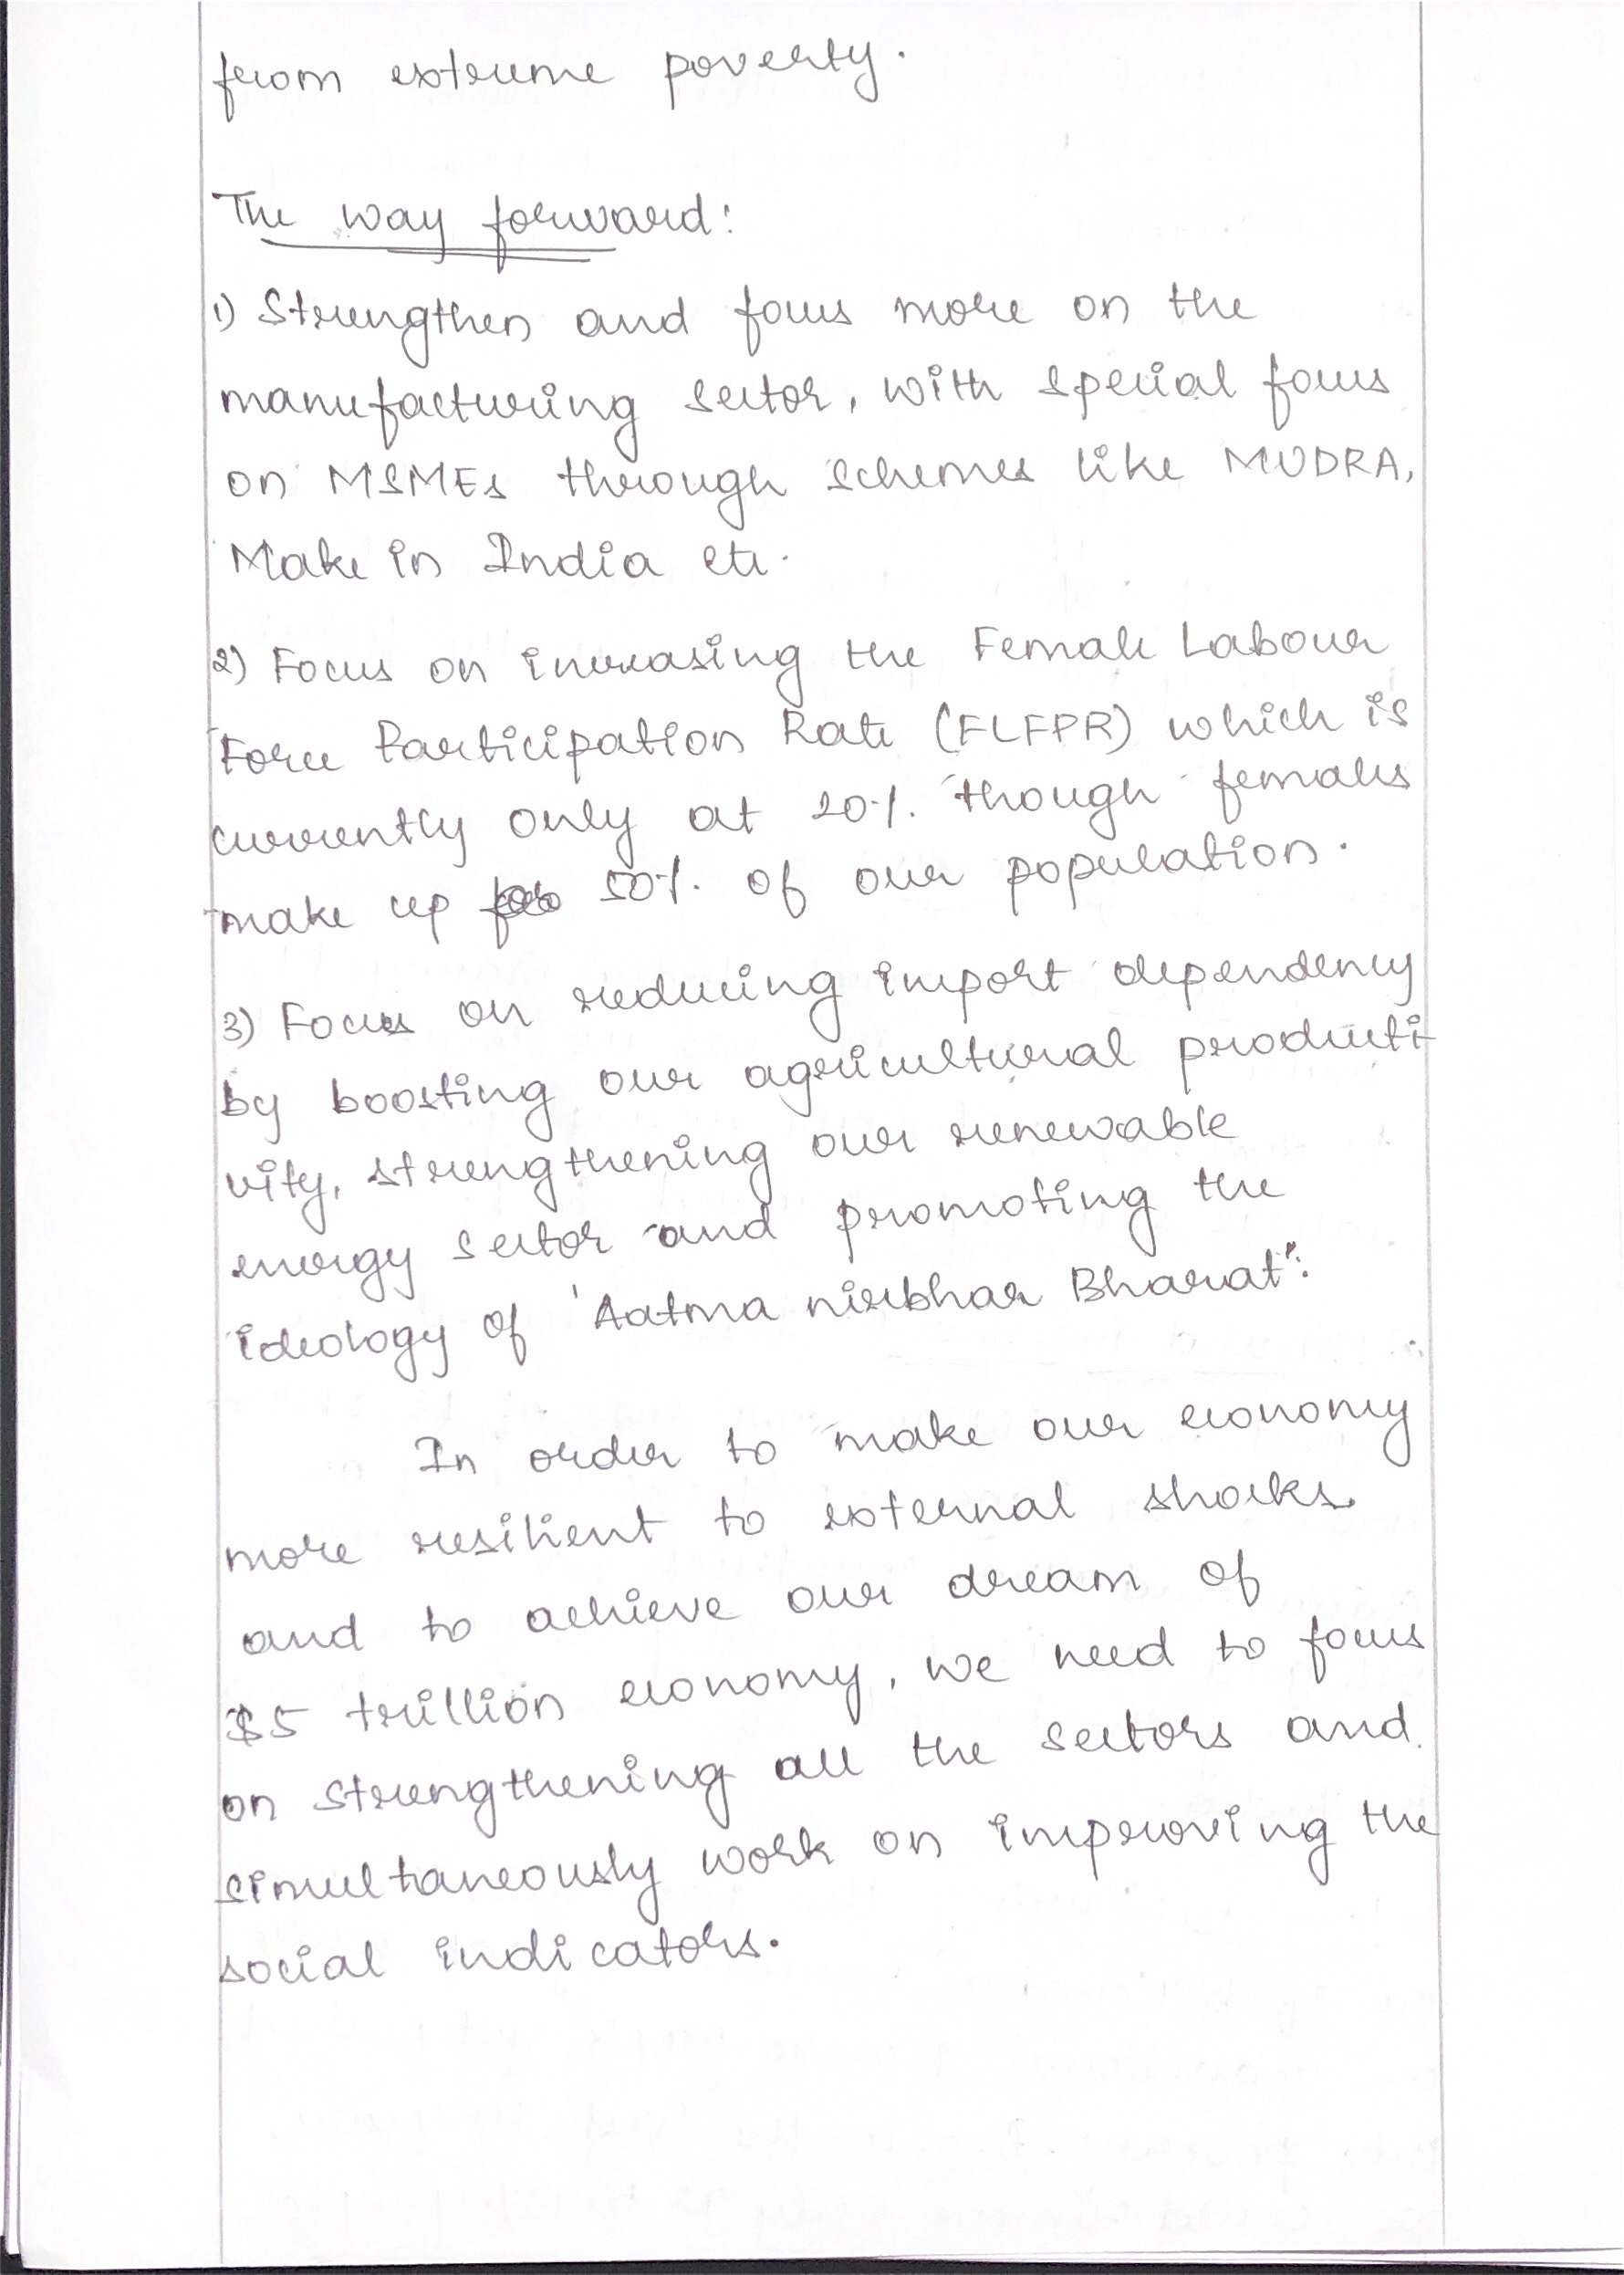 from extreme poverty.
The way forward:
1) Strengthen and focus more on the
manufacturing sector, with special focus
on MSMEs through schemes like MUDRA,
Make in India etc.
2) Focus on increasing the Female Labour
Force Participation Rate (FLFPR) which is
currently only at 20%. though females
make up 50%. of our population.
3) Focus on reducing import dependency
by boosting our agricultural producti
vity, strengthening our renewable
energy sector and promoting the
ideology of 'Aatma nirbhar Bharat'.
In order to make our economy
more resilient to external shocks
and to achieve our dream of
$5 trillion economy, we need to focus
on strengthening all the sectors and
simultaneously work on improving the
social indicators.